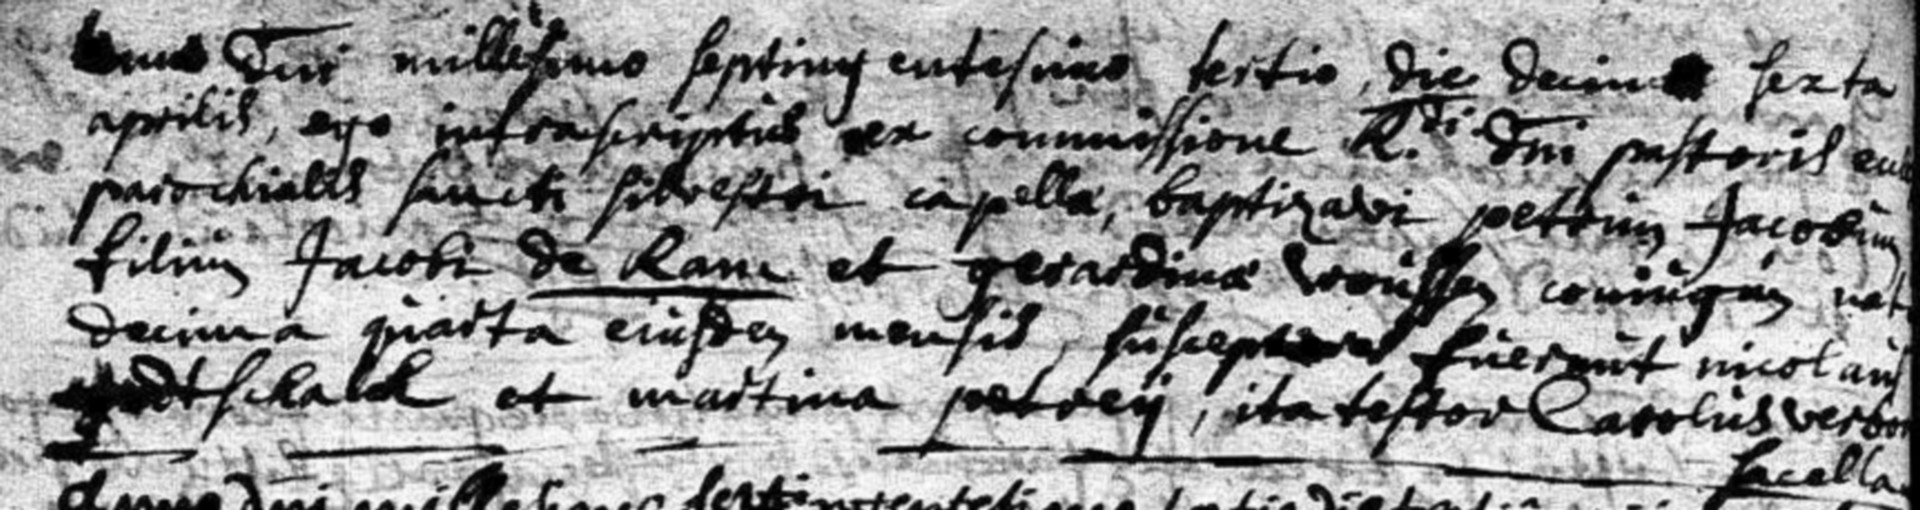 anno Dni millesimo septingentesimo tertio, die decima sexta
aprilis, ego infrascriptus ex commissione R.di Dni pastoris
parochialis sancti silvestri capella, baptizavi petrum Jacobum
filium Jacobi de Ranc et gerardina woussen coniugum nat
decima quarta eiusdem mensis, susceptores fuerunt nicolaus
godtschalck et martina petreij, ita testor Carolus
sacella
Anno Dni millesimo septingentesimo tertio die